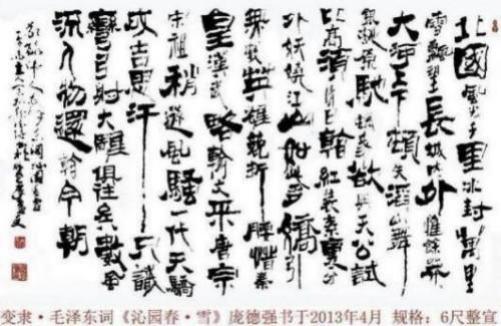 北國風光千里冰封萬里
雪飄望長城内外惟餘莽
大河上下頓失滔山舞
銀蛇原馳欲與天公試
比高須晴日看紅裝素裹分
外妖嬈江山如此多嬌引
無數英雄競折腰惜秦
皇漢武略輸文采唐宗
宋祖稍遜風騷一代天驕
成吉思汗只識
彎弓射大雕俱往矣數風
流人物還看今朝
变隶·毛泽东词《沁园春·雪》庞德强书于2013年4月 规格：6尺整宣